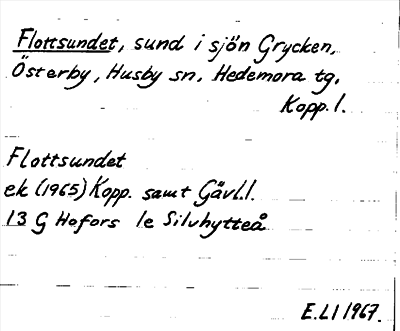 Flottsundet, sund i sjön Grycken,
Österby, Husby sn. Hedemora tg.
Kopp. l.
Flottsundet
ek (1965) Kopp. samt Gävl.l.
13 G Hofors 1e Silvhytteå
E.Ll 1967.